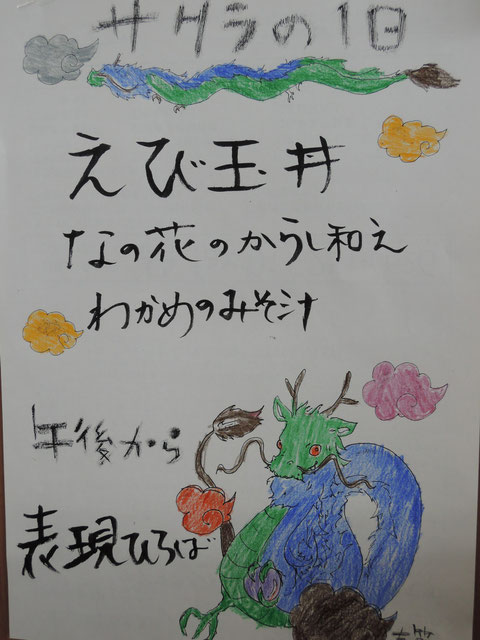 サクラの1日
えび玉丼
なの花のからし和え
わかめのみそ汁
午後から
表現ひろば